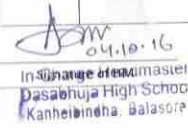 04.10.16
In-Charge Headmaster
Dasabhuja High School
Kanheibindha, Balasore